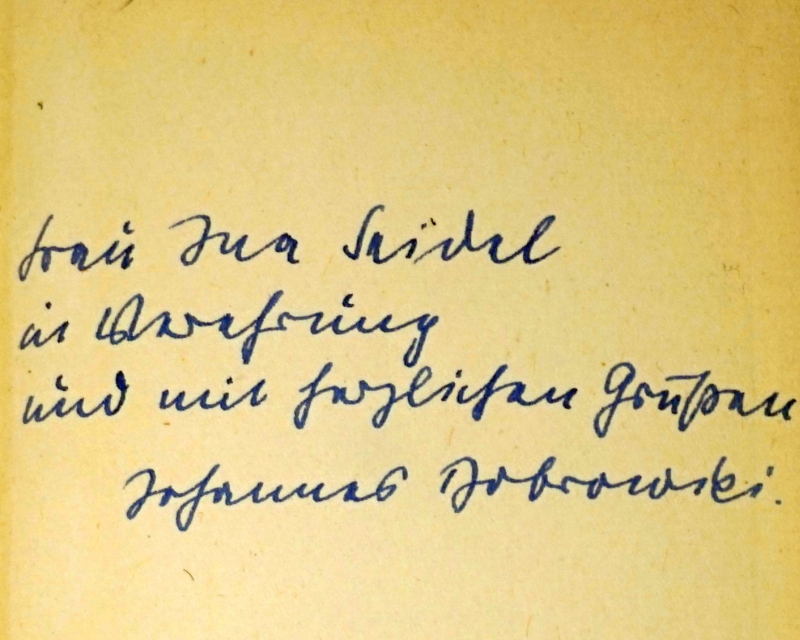 Frau Ina Seidel
in Verehrung
und mit herzlichen Grüßen
Johannes Bobrowski.